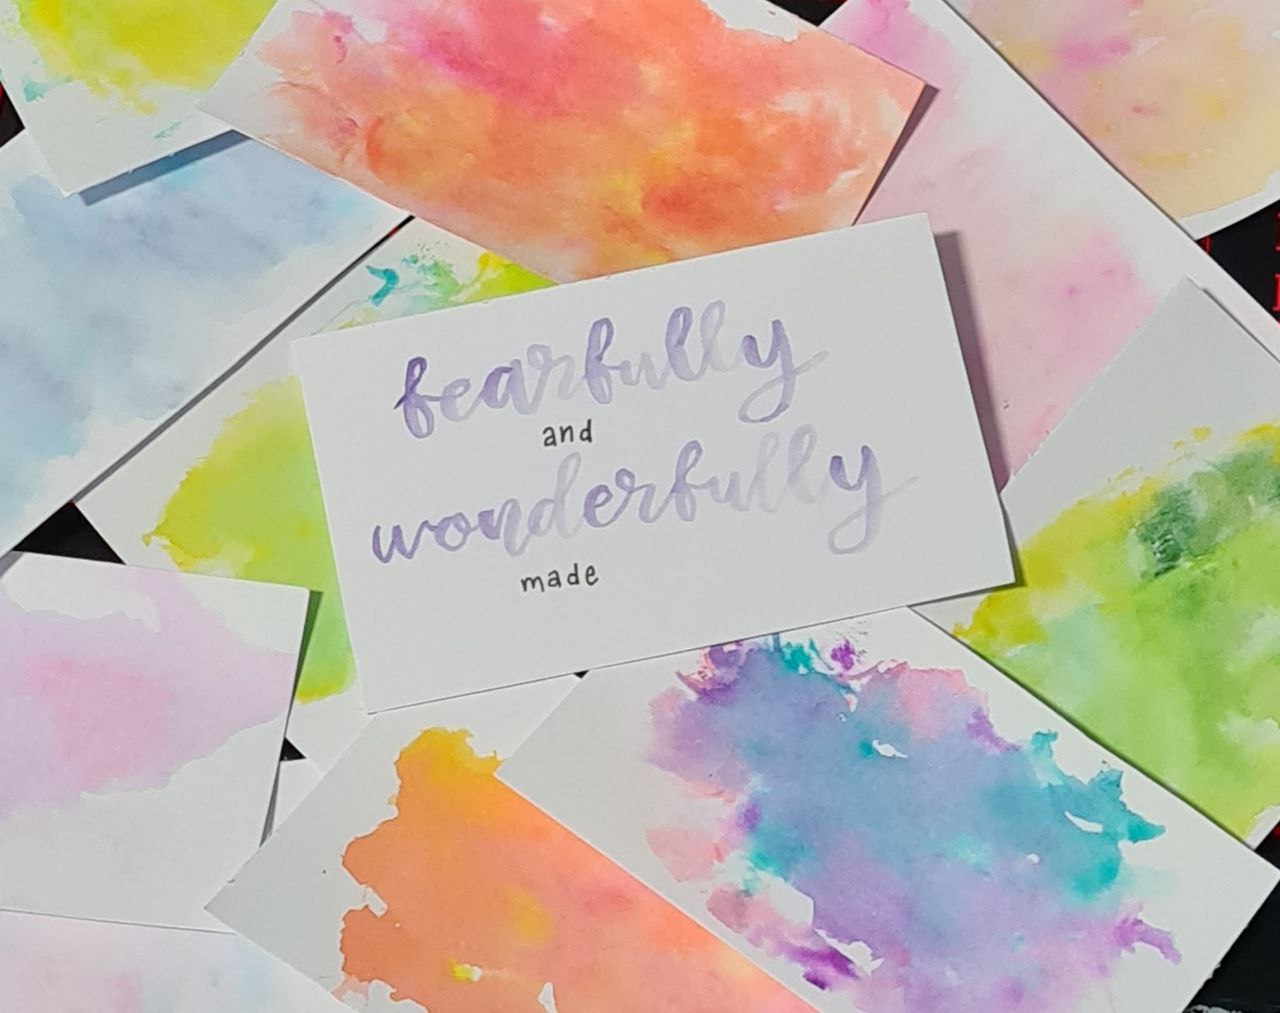 fearfully
and
wonderfully
made